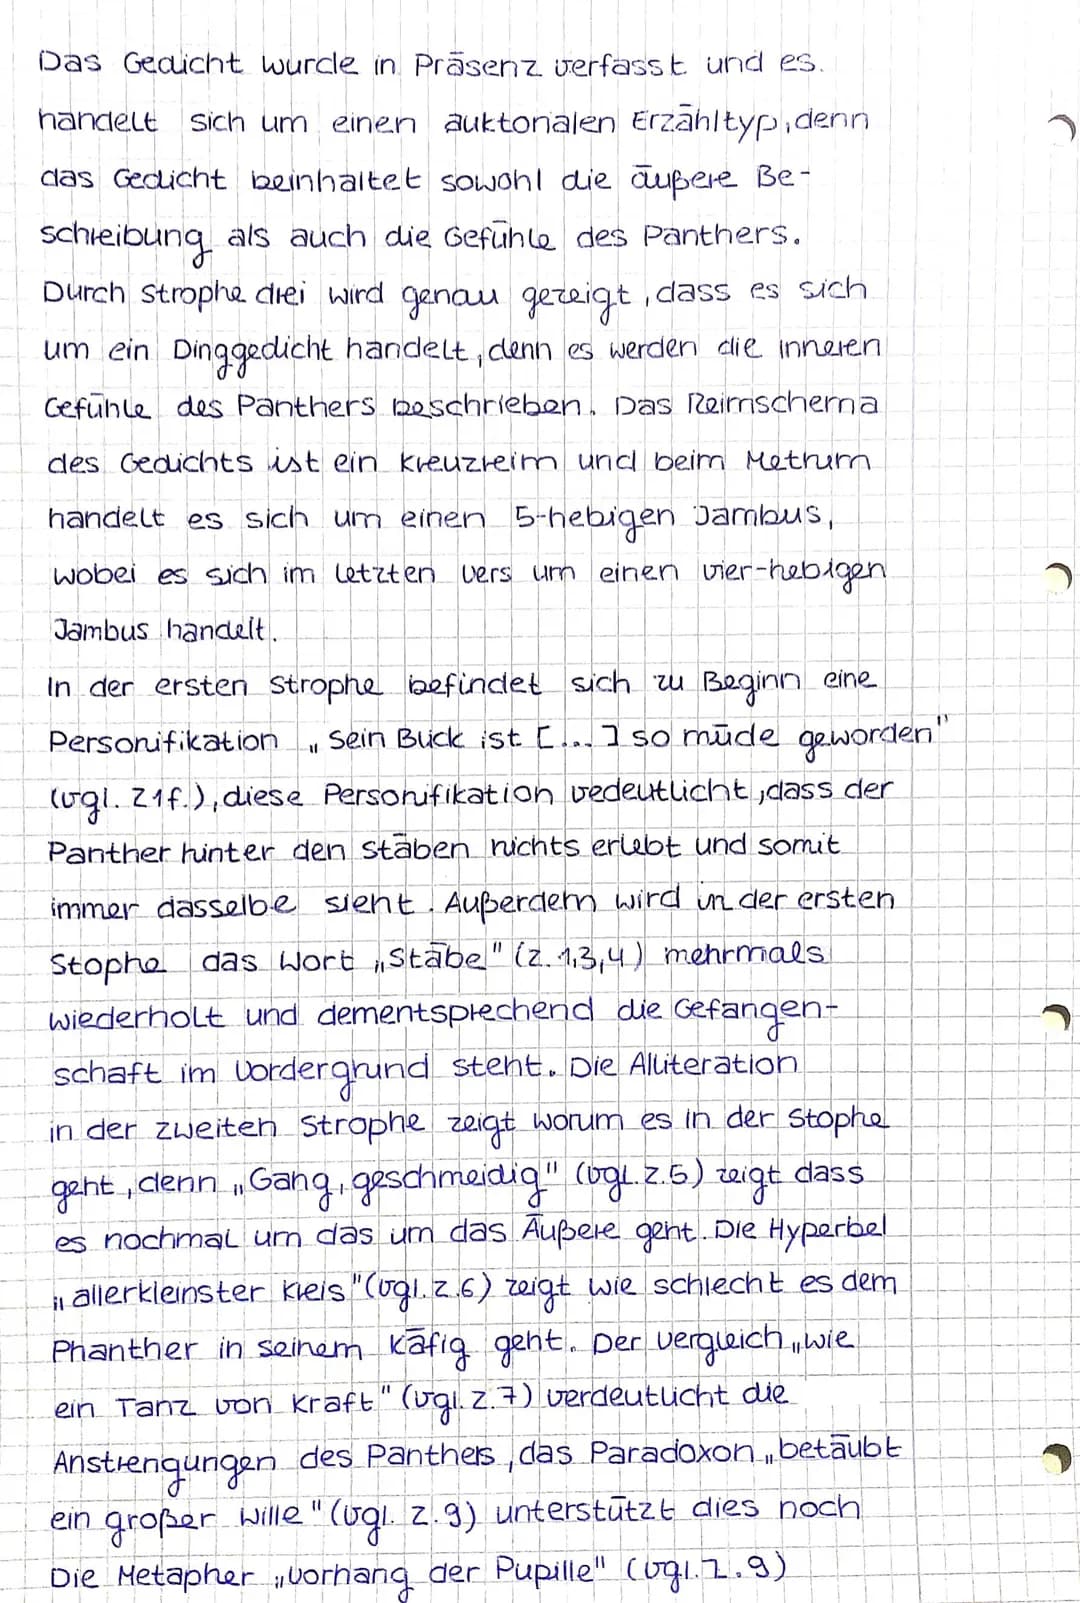 Das Gedicht wurde in Präsenz verfasst und es.
handelt sich um einen auktorialen Erzähltyp, denn
das Gedicht beinhaltet sowohl die äußere Be-
schreibung als auch die Gefühle des Panthers.
Durch Strophe drei wird genau gezeigt, dass es sich
um ein Dinggedicht handelt, denn es werden die inneren
Gefühle des Panthers beschrieben. Das Reimschema
des Gedichts ist ein Kreuzreim und beim Metrum
handelt es sich um einen 5-hebigen Jambus,
wobei es sich im letzten Vers um einen vier-hebigen
Jambus handelt.
In der ersten Strophe befindet sich zu Beginn eine
Personifikation „Sein Blick ist [...] so müde geworden"
(vgl. Z1f.), diese Personifikation vedeutlicht, dass der
Panther hinter den Stäben nichts erlebt und somit
immer dasselbe sieht. Außerdem wird in der ersten
Stophe das Wort „Stäbe" (Z. 1,3,4) mehrmals
wiederholt und dementsprechend die Gefangen-
schaft im Vordergrund steht. Die Alliteration
in der zweiten Strophe zeigt worum es in der Stophe
geht, denn „Gang, geschmeidig" (vgl. Z.5) zeigt dass
es nochmal um das um das Äußere geht. Die Hyperbel
„allerkleinster Kreis" (vgl. Z.6) zeigt wie schlecht es dem
Phanther in seinem Käfig geht. Der Vergleich „wie
ein Tanz von Kraft" (vgl. Z.7) verdeutlicht die
Anstrengungen des Panthers, das Paradoxon „betäubt
ein großer Wille" (vgl. Z.9) unterstützt dies noch
Die Metapher „Vorhang der Pupille" (vgl. Z.9)